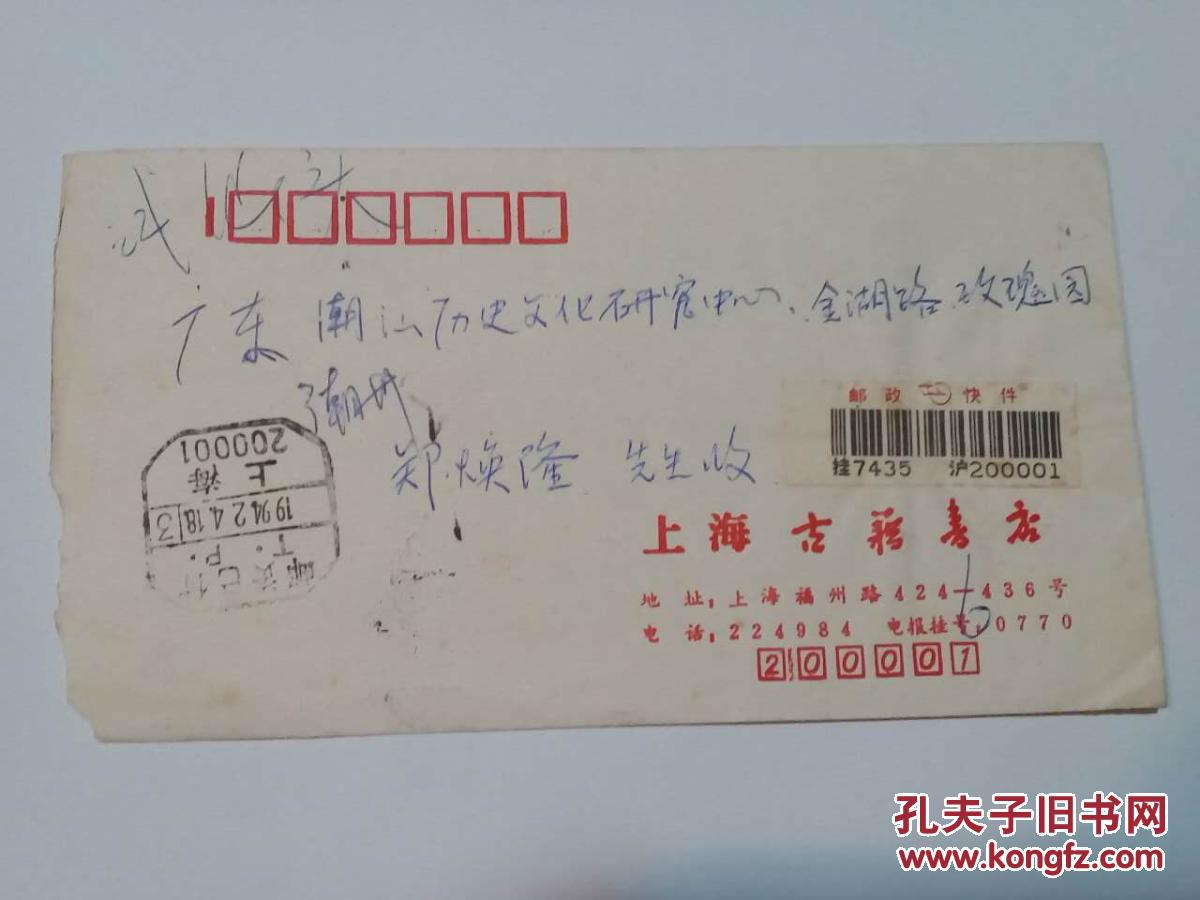 广东 潮汕历史文化研究中心、金湖路 玫瑰园
潮州
郑焕隆 先生收
邮政 快件
挂7435 沪200001
上海古籍书店
地 址：上海福州路424—436号
电 话：224984 电报挂号：0770
200001
邮资已付
T. P.
1994 2 4.18 3
上海
200001
孔夫子旧书网
www.kongfz.com